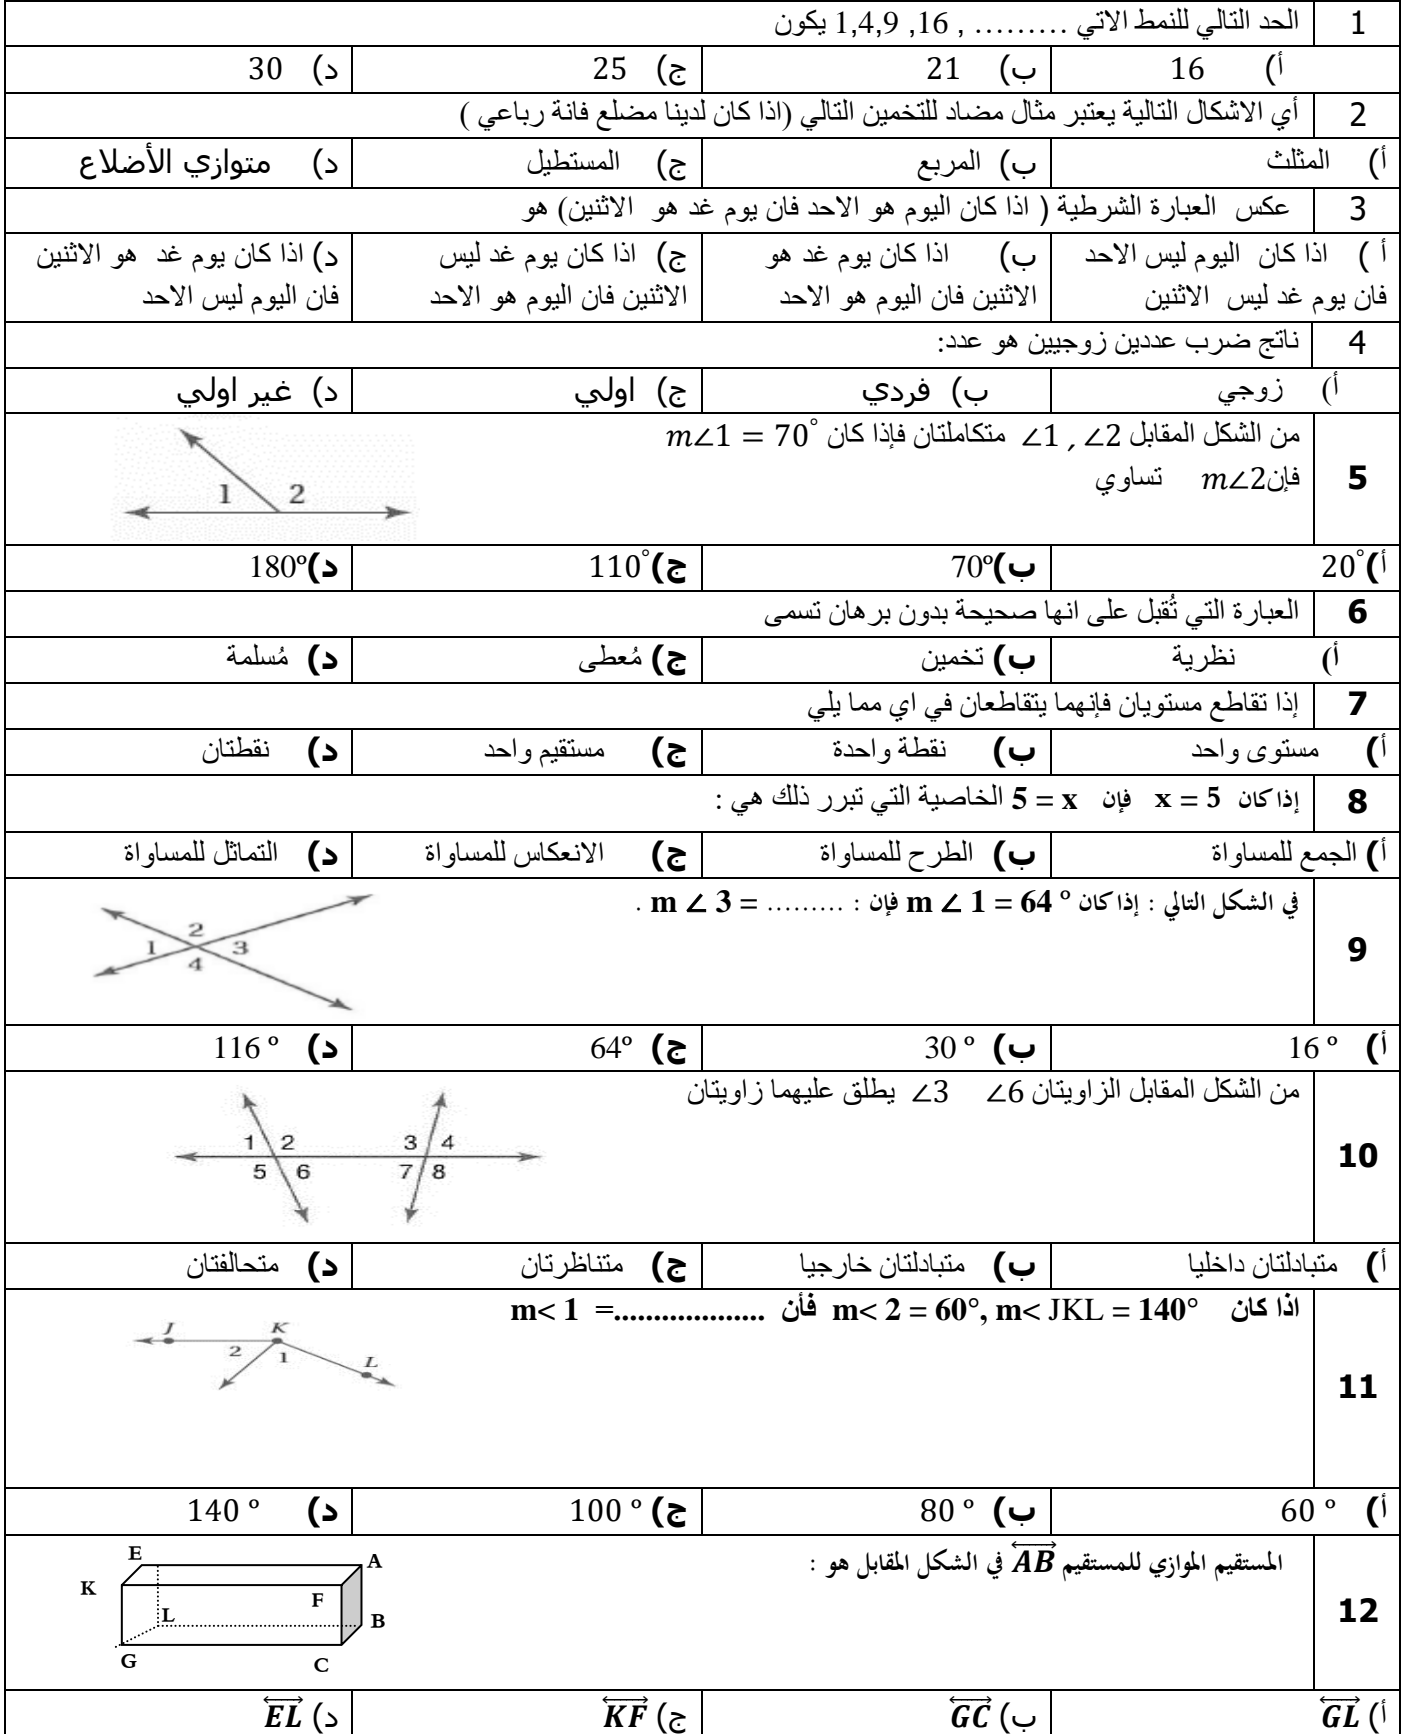 1 الحد التالي للنمط الاتي ......... , 16, 1,4,9 يكون
أ) 16 ب) 21 ج) 25 د) 30
2 أي الاشكال التالية يعتبر مثال مضاد للتخمين التالي (اذا كان لدينا مضلع فانة رباعي )
أ) المثلث ب) المربع ج) المستطيل د) متوازي الأضلاع
3 عكس العبارة الشرطية ( اذا كان اليوم هو الاحد فان يوم غد هو الاثنين) هو
أ ) اذا كان اليوم ليس الاحد فان يوم غد ليس الاثنين
ب) اذا كان يوم غد هو الاثنين فان اليوم هو الاحد
ج) اذا كان يوم غد ليس الاثنين فان اليوم هو الاحد
د) اذا كان يوم غد هو الاثنين فان اليوم ليس الاحد
4 ناتج ضرب عددين زوجيين هو عدد:
أ) زوجي ب) فردي ج) اولي د) غير اولي
5 من الشكل المقابل ∠1 , ∠2 متكاملتان فإذا كان m∠1 = 70°
فإن m∠2 تساوي
1 2
أ) 20° ب) 70º ج) 110° د) 180º
6 العبارة التي تُقبل على انها صحيحة بدون برهان تسمى
أ) نظرية ب) تخمين ج) مُعطى د) مُسلمة
7 إذا تقاطع مستويان فإنهما يتقاطعان في اي مما يلي
أ) مستوى واحد ب) نقطة واحدة ج) مستقيم واحد د) نقطتان
8 إذا كان x = 5 فإن 5 = x الخاصية التي تبرر ذلك هي :
أ) الجمع للمساواة ب) الطرح للمساواة ج) الانعكاس للمساواة د) التماثل للمساواة
9 في الشكل التالي : إذا كان m ∠ 1 = 64 º فإن : ......... = m ∠ 3 .
1 2 3 4
أ) 16 º ب) 30 º ج) 64º د) 116 º
10 من الشكل المقابل الزاويتان ∠6 ∠3 يطلق عليهما زاويتان
1 2 3 4
5 6 7 8
أ) متبادلتان داخليا ب) متبادلتان خارجيا ج) متناظرتان د) متحالفتان
11 اذا كان m< 2 = 60°, m< JKL = 140° فأن ...................= m< 1
J K L 2 1
أ) 60 º ب) 80 º ج) 100 º د) 140 º
12 المستقيم الموازي للمستقيم AB في الشكل المقابل هو :
E A
K F
L B
G C
أ) GL ب) GC ج) KF د) EL